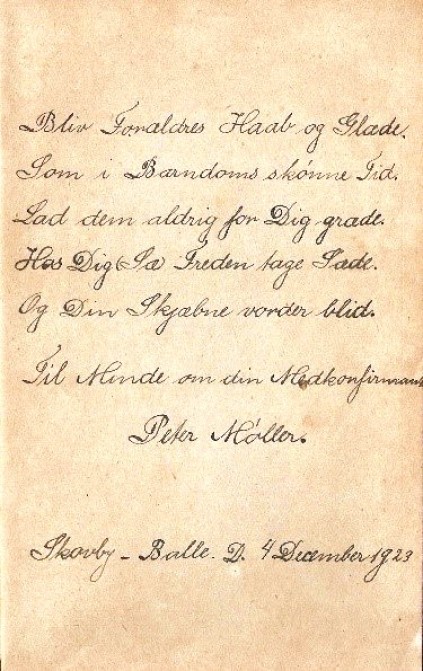 Bliv Forældres Haab og Glæde.
Som i Barndoms skønne Tid.
Lad dem aldrig for Dig græde.
Hos Dig Freden tage Sæde.
Og Din Skjæbne vorder blid.
Til Minde om din Medkonfirmant
Peter Møller.
Skovby - Balle. D. 4 December 1923